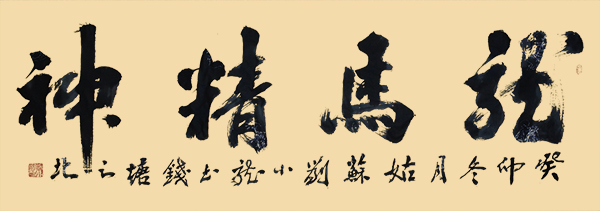 龍馬精神
癸卯冬月姑蘇劉小龍書錢塘之北